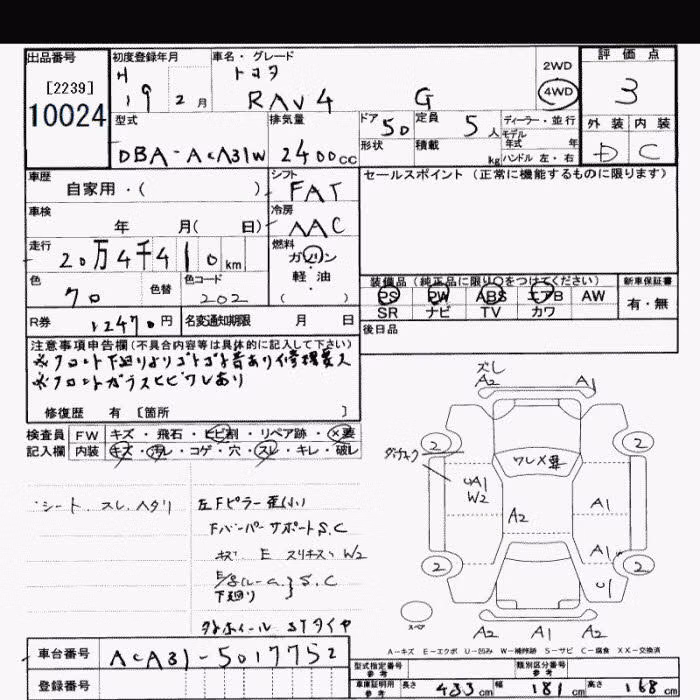 出品番号
[2239]
10024
初度登録年月
H
19 2 月
車名・グレード
トヨタ
RAV4 G
2WD
4WD
評価点
3
外装 内装
D C
型式
DBA-ACA31W
排気量
2400cc
ドア 5D
定員 5人
ディーラー・並行
モデル
年式 年
形状
積載 kg
ハンドル 左・右
車歴
自家用・( )
シフト
FAT
セールスポイント(正常に機能するものに限ります)
車検
年 月( 日)
冷房
AAC
走行
20万4千410km
燃料
ガソリン
軽・油
( )
色
クロ
色替
色コード
202
装備品(純正品に限り○をつけてください)
新車保証書
PS PW ABS エアB AW
有・無
SR ナビ TV カワ
R券
12470円
名変通知期限 月 日
後日品
注意事項申告欄(不具合内容等は具体的に記入して下さい)
※フロント下廻りよりゴトゴト音あり修理要ス
※フロントガラスヒビワレあり
修復歴 有 [箇所 ]
検査員 FW キズ・飛石・ヒビ割・リペア跡・×要
記入欄 内装 キズ・汚レ・コゲ・穴・スレ・キレ・破レ
シート スレ ヘタリ
左Fピラー歪(小)
Fバンパーサポート S.C
キズ E スリキズ W2
下廻り } S.C
STタイヤ
ズレ
A2 A1
2 2
ワレ×要
UA1
W2
A1
A2
A1
2 2
U1
スペア
A2 A1 A2
A-キズ E-エクボ U-凹み W-補修跡 S-サビ C-腐食 XX-交換済
車台番号
ACA31-5017752
登録番号
型式指定番号
参考
類別区分番号
参考
車庫証明用
参考
長さ 433cm 幅 181cm 高さ 168cm